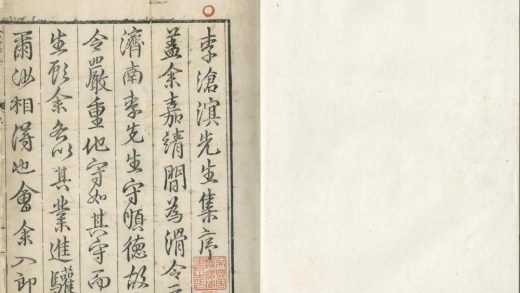 李滄溟先生集序
蓋余嘉靖間為滑令
濟南李先生守順德故
令嚴重他守如其守而
生於余各以其業進驩
爾汝相得也會余入郎